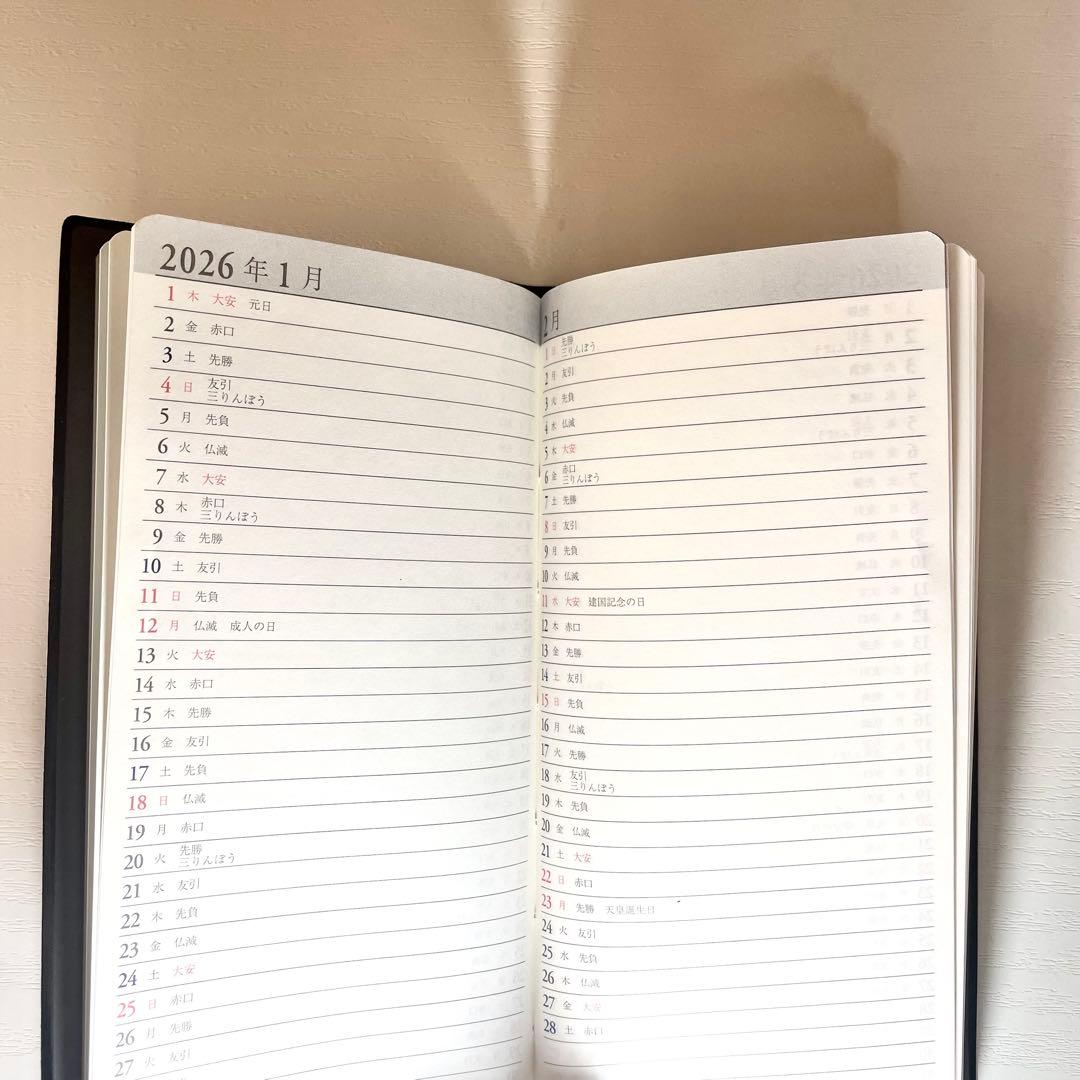 2026年1月
1 木 大安 元日
2 金 赤口
3 土 先勝
4 日 友引
三りんぼう
5 月 先負
6 火 仏滅
7 水 大安
8 木 赤口
三りんぼう
9 金 先勝
10 土 友引
11 日 先負
12 月 仏滅 成人の日
13 火 大安
14 水 赤口
15 木 先勝
16 金 友引
17 土 先負
18 日 仏滅
19 月 赤口
20 火 先勝
三りんぼう
21 水 友引
22 木 先負
23 金 仏滅
24 土 大安
25 日 赤口
26 月 先勝
27 火 友引
2月
1 日 先勝
三りんぼう
2 月 友引
3 火 先負
4 水 仏滅
5 木 大安
6 金 赤口
三りんぼう
7 土 先勝
8 日 友引
9 月 先負
10 火 仏滅
11 水 大安 建国記念の日
12 木 赤口
13 金 先勝
14 土 友引
15 日 先負
16 月 仏滅
17 火 先勝
18 水 友引
三りんぼう
19 木 先負
20 金 仏滅
21 土 大安
22 日 赤口
23 月 先勝 天皇誕生日
24 火 友引
25 水 先負
26 木 仏滅
27 金 大安
28 土 赤口